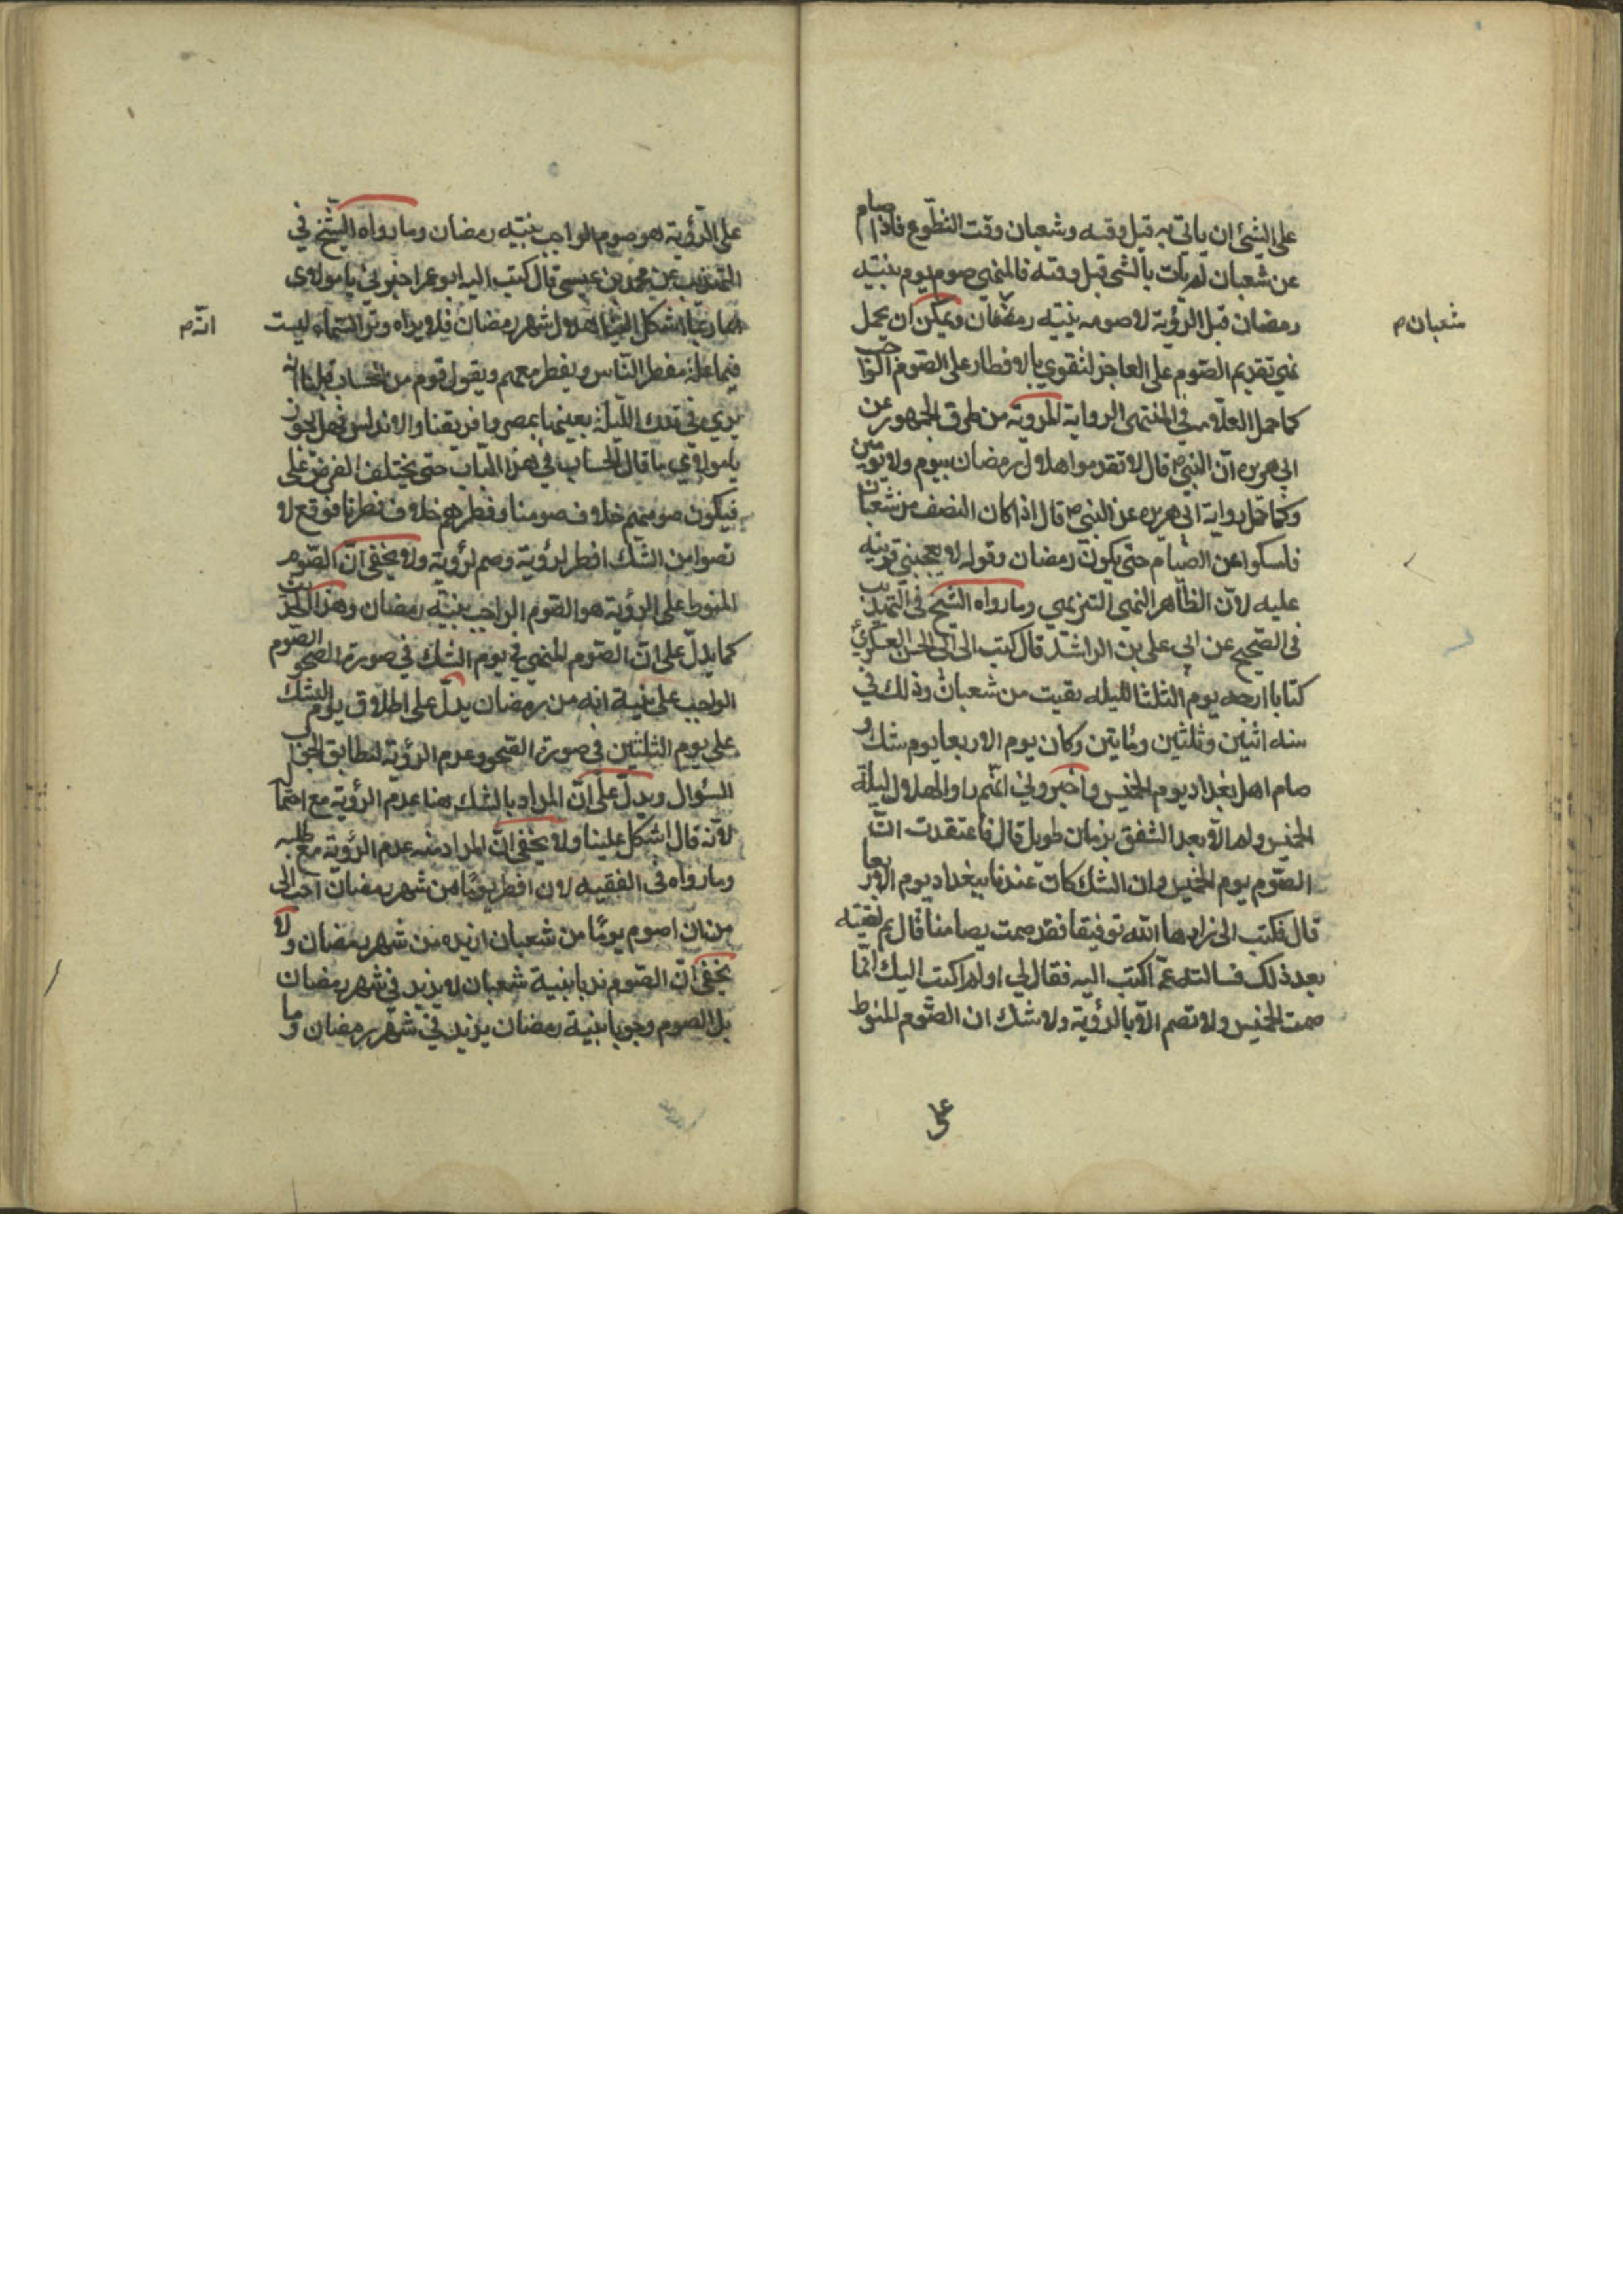 على الشئ ان ياتي به قبل وقته وشعبان وقت التطوع فاذا صام
عن شعبان لم يات بالشى قبل وقته فالمنهى صوم يوم بنيته
رمضان قبل الرؤية لا صومه بنيته رمضان ويمكن ان يحمل
شعبان م
نهى تقديم الصوم على العاجز لتقوى بالافطار على الصوم الواجب
كما حمل العلامه في المنتهى الرواية المروية من طرق الجمهور عن
ابى هريره ان النبي ص قال لا تقدموا هلال رمضان بيوم ولا يومين
وكما حمل رواية ابى هريره عن النبي ص قال اذا كان النصف من شعبان
فامسكوا عن الصيام حتى يكون رمضان وقوله لا يعجبنى قرينه
عليه لان الظاهر النهى التنزيهي وما رواه الشيخ فى التهذيب
فى الصحيح عن ابى على بن الراشد قال كتب الى ابى الحسن العسكرى
كتابا ارخه يوم الثلثا لليله بقيت من شعبان وذلك في
سنه اثنين وثلثين ومائتين وكان يوم الاربعا يوم شك و
صام اهل بغداد يوم الخميس واخبروني انهم راوا الهلال ليلة
الخميس ولم الا بعد الشفق بزمان طويل قال فاعتقدت ان
الصوم يوم الخميس وان الشك كان عندنا ببغداد يوم الاربعا
قال فكتب الى زادها الله توفيقا فقد صمت بصيامنا قال ثم لقيته
بعد ذلك فسالته عما كتبت اليه فقال لي اولم اكتب اليك انما
صمت الخميس ولا تصم الا بالرؤية ولا شك ان الصوم المنوط
على
على الرؤية هو صوم الواجب بنيته رمضان وما رواه الشيخ في
التهذيب عن محمد بن عيسى قال كتب اليه ابو عمرا خبرني يا مولاى
انه ربما اشكل علينا هلال شهر رمضان فلا يراه ونرى السماء ليست
انه م
فيها علة فيفطر الناس ويفطر معهم ويقول قوم من الحساب قبلنا انه
يرى فى تلك الليلة بعينها بمصر وافريقيا والاندلس فهل يجوز
يا مولاى ما قال الحساب في هذا الباب حتى يختلف الفرض على
فيكون صومهم خلاف صومنا وفطرهم خلاف فطرنا فوقع لا
تصوا من الشك افطر لرؤية وصم لرؤية ولا يخفى ان الصوم
المنوط على الرؤية هو الصوم الواجب بنيته رمضان وهذا الحديث
كما يدل على ان الصوم المنهى فى يوم الشك في صورة الصحو الصوم
الواجب على نية انه من رمضان يدل على اطلاق يوم الشك
على يوم الثلثين فى صورة الصحو وعدم الرؤية لتطابق الجواب
السؤال ويدل على ان المراد بالشك هنا عدم الرؤية مع احتما
لانه قال اشكل علينا ولا يخفى ان المراد منه عدم الرؤية مع طلبه
وما رواه فى الفقيه لان افطر يوما من شهر رمضان احب الى
من ان اصوم يوما من شعبان ازيده من شهر رمضان ولا
يخفى ان الصوم ندبا بنية شعبان لا يزيد فى شهر رمضان
بل الصوم وجوبا بنية رمضان يزيد في شهر رمضان وما